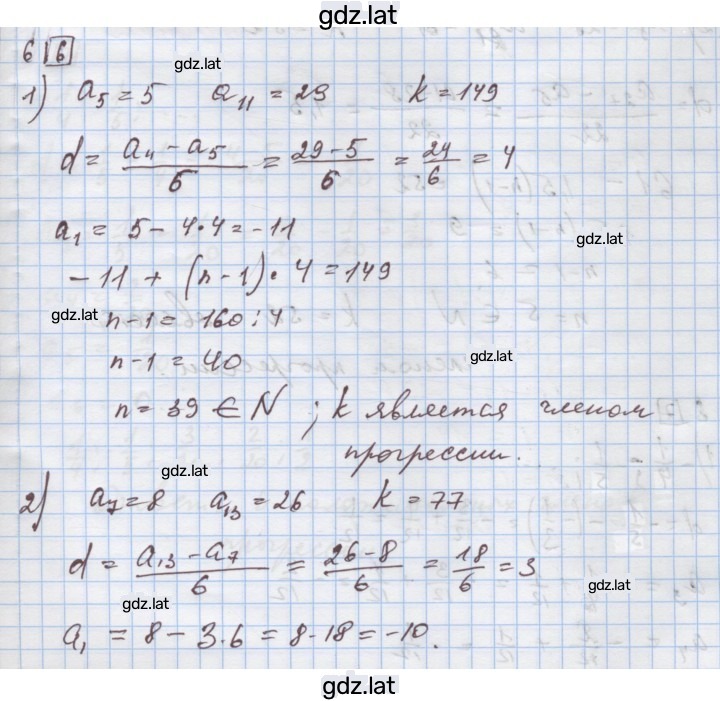 gdz.lat
6 | 6
gdz.lat
1) a₅ = 5 a₁₁ = 29 k = 149
d = (a₁₁ - a₅)/6 = (29 - 5)/6 = 24/6 = 4
a₁ = 5 - 4·4 = -11
gdz.lat
-11 + (n - 1)·4 = 149
gdz.lat
n - 1 = 160 : 4
n - 1 = 40
gdz.lat
n = 39 ∈ N ; k является членом
прогрессии.
gdz.lat
2) a₇ = 8 a₁₃ = 26 k = 77
d = (a₁₃ - a₇)/6 = (26 - 8)/6 = 18/6 = 3
gdz.lat
gdz.lat
a₁ = 8 - 3·6 = 8 - 18 = -10.
gdz.lat